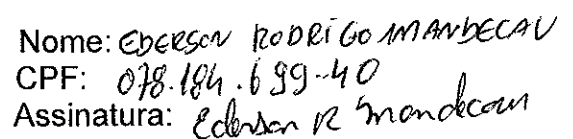 Nome: EDERSON RODRIGO MANDECAU
CPF: 078.184.699-40
Assinatura: Ederson R Mandecau